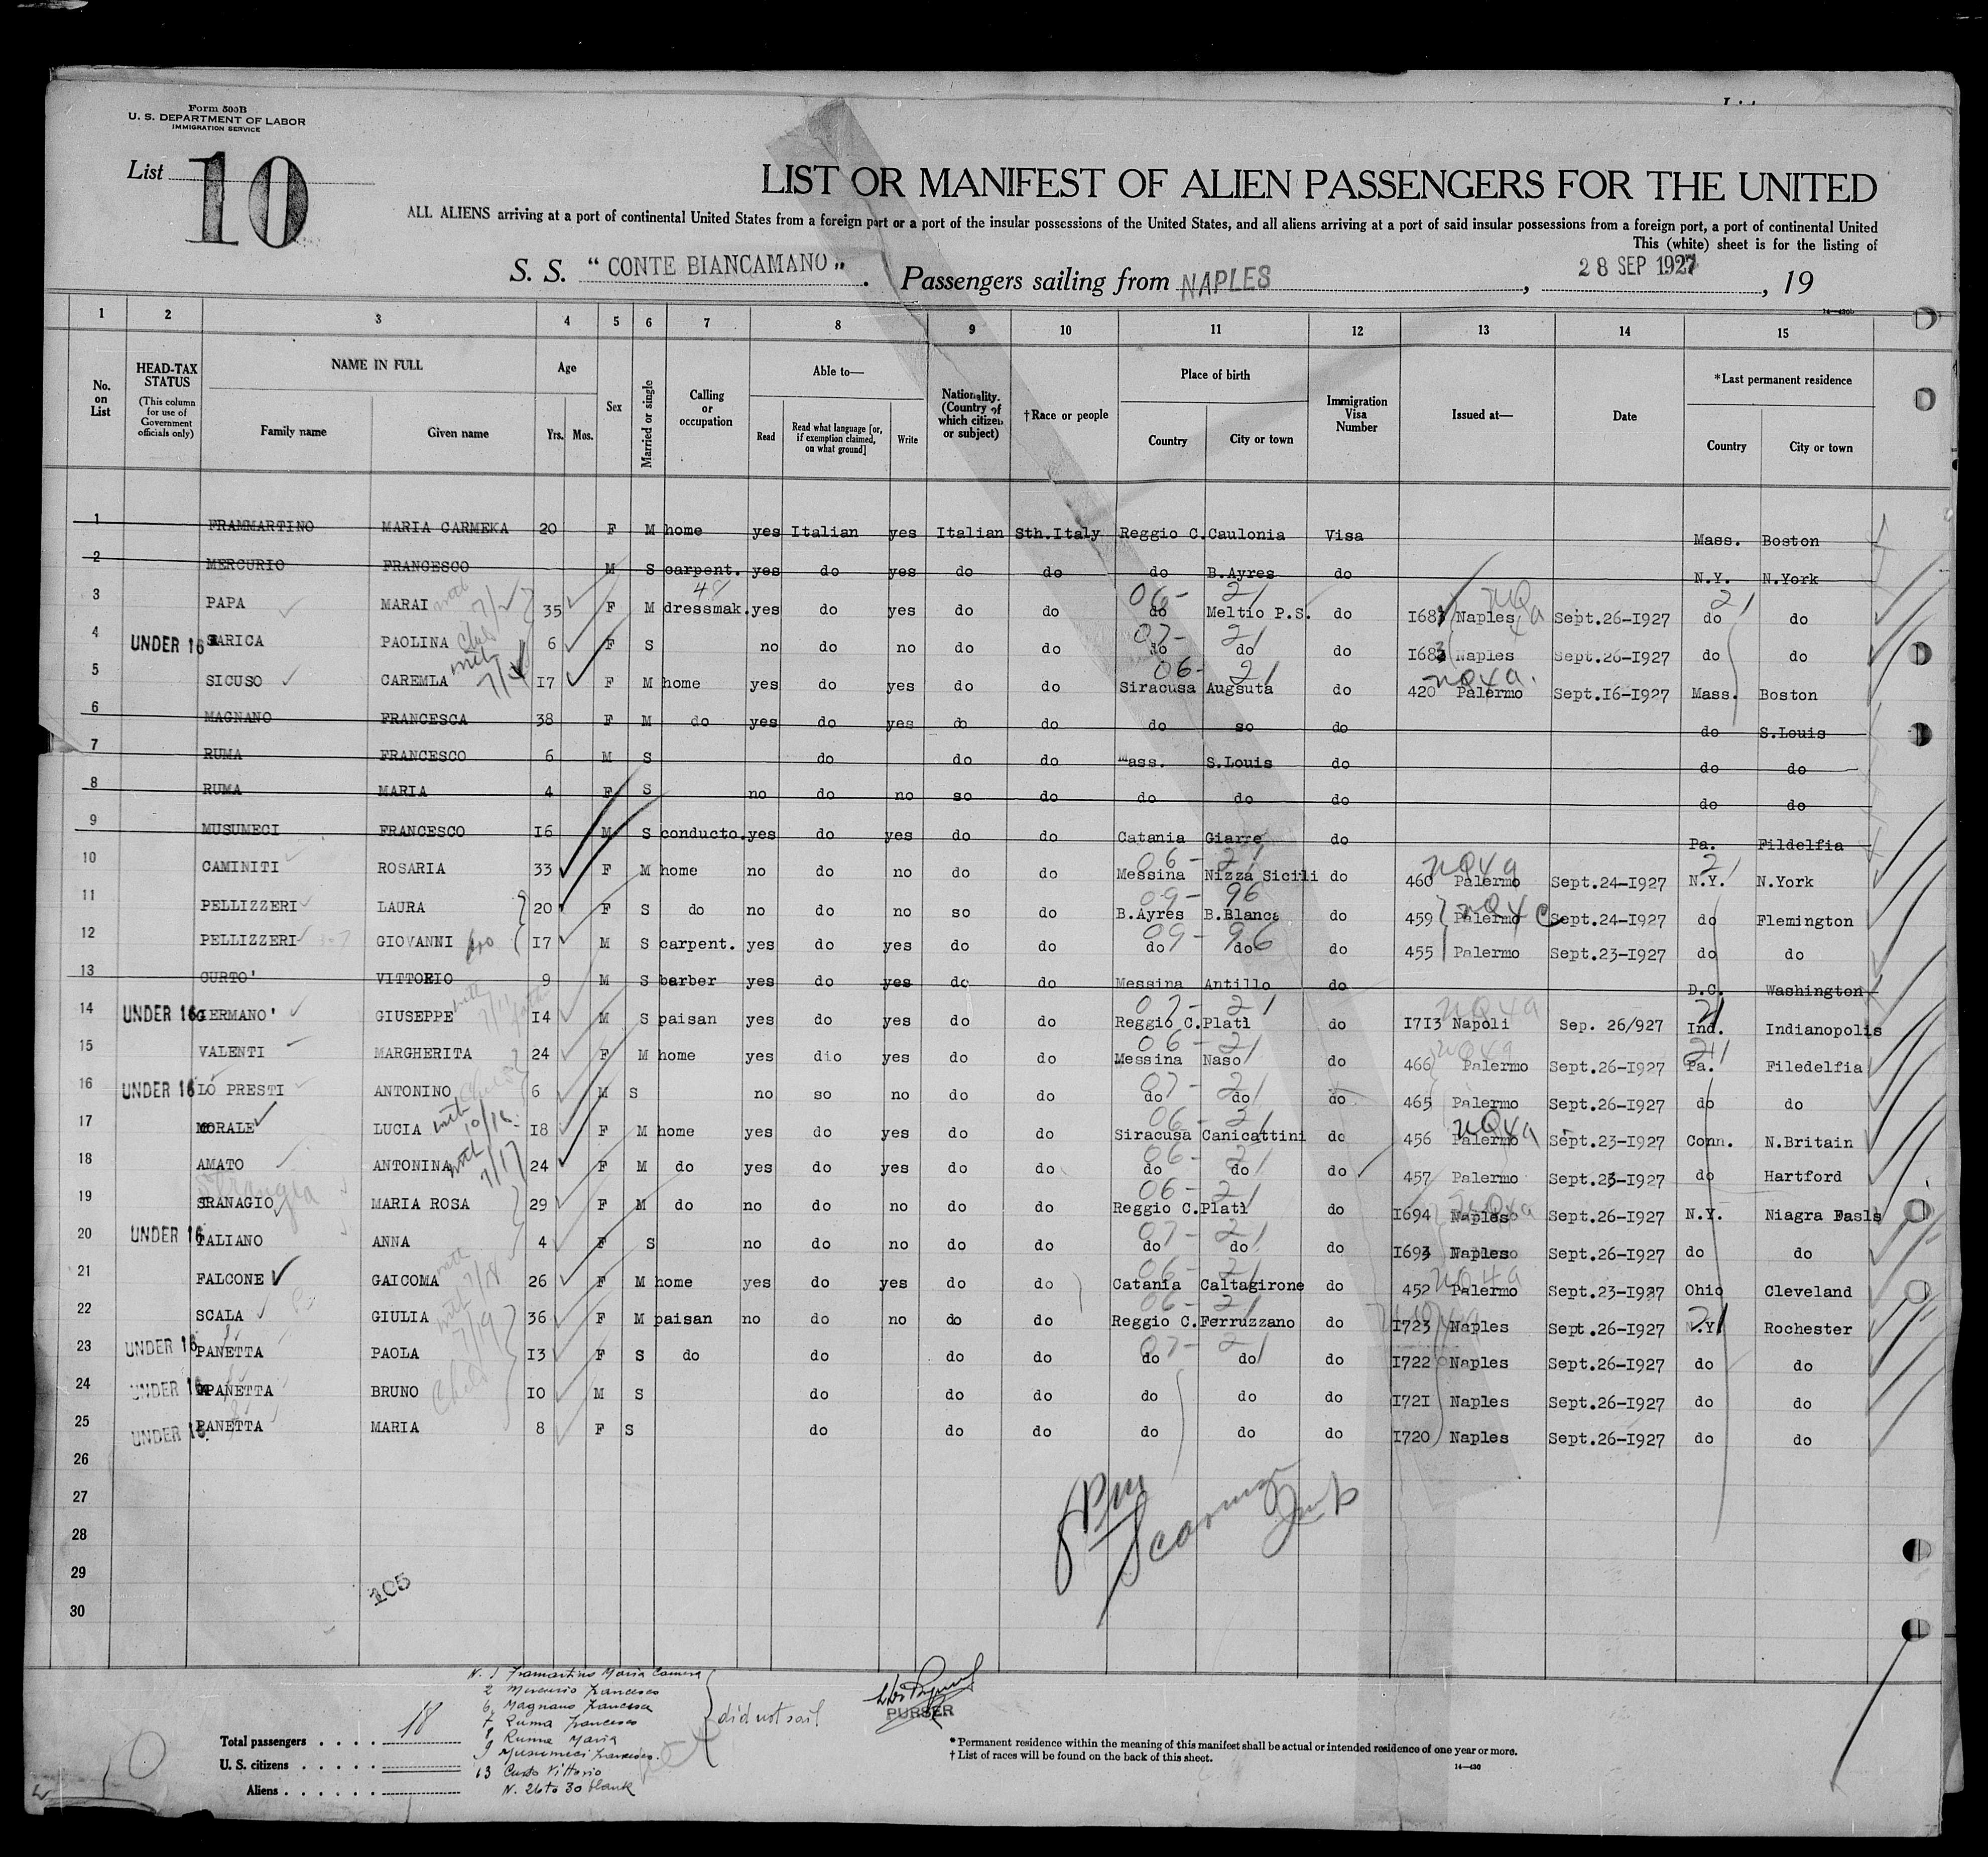 Form 500B
U. S. DEPARTMENT OF LABOR
IMMIGRATION SERVICE
List 10
LIST OR MANIFEST OF ALIEN PASSENGERS FOR THE UNITED
ALL ALIENS arriving at a port of continental United States from a foreign port or a port of the insular possessions of the United States, and all aliens arriving at a port of said insular possessions from a foreign port, a port of continental United
This (white) sheet is for the listing of
S. S. "CONTE BIANCAMANO". Passengers sailing from NAPLES, 28 SEP 1927, 19
14—430b
1 2 3 4 5 6 7 8 9 10 11 12 13 14 15
No. on List
HEAD-TAX STATUS (This column for use of Government officials only)
NAME IN FULL
Family name Given name
Age
Yrs. Mos.
Sex
Married or single
Calling or occupation
Able to—
Read Read what language [or, if exemption claimed, on what ground] Write
Nationality. (Country of which citizen or subject)
†Race or people
Place of birth
Country City or town
Immigration Visa Number
Issued at—
Date
*Last permanent residence
Country City or town
1 FRAMMARTINO MARIA CARMEKA 20 F M home yes Italian yes Italian Sth.Italy Reggio C. Caulonia Visa Mass. Boston
2 MERCURIO FRANCESCO M S carpent. yes do yes do do do B.Ayres do N.Y. N.York
3 PAPA MARAI 35 F M dressmak. yes do yes do do do Meltio P.S. do I683 Naples Sept.26-I927 do do
4 UNDER 16 SARICA PAOLINA 6 F S no do no do do do do do I683 Naples Sept.26-I927 do do
5 SICUSO CAREMLA I7 F M home yes do yes do do Siracusa Augsuta do 420 Palermo Sept.I6-I927 Mass. Boston
6 MAGNANO FRANCESCA 38 F M do yes do yes do do do so do do S.Louis
7 RUMA FRANCESCO 6 M S do do do Mass. S.Louis do do do
8 RUMA MARIA 4 F S no do no so do do do do do do
9 MUSUMECI FRANCESCO I6 M S conducto. yes do yes do do Catania Giarre do Pa. Fildelfia
10 CAMINITI ROSARIA 33 F M home no do no do do Messina Nizza Sicili do 460 Palermo Sept.24-I927 N.Y. N.York
11 PELLIZZERI LAURA 20 F S do no do no so do B.Ayres B.Blanca do 459 Palermo Sept.24-I927 do Flemington
12 PELLIZZERI GIOVANNI I7 M S carpent. yes do yes do do do do do 455 Palermo Sept.23-I927 do do
13 CURTO' VITTORIO 9 M S barber yes do yes do do Messina Antillo do D.C. Washington
14 UNDER 16 GERMANO' GIUSEPPE I4 M S paisan yes do yes do do Reggio C. Platì do I7I3 Napoli Sep. 26/927 Ind. Indianopolis
15 VALENTI MARGHERITA 24 F M home yes dio yes do do Messina Naso do 466 Palermo Sept.26-I927 Pa. Filedelfia
16 UNDER 16 LO PRESTI ANTONINO 6 M S no so no do do do do do 465 Palermo Sept.26-I927 do do
17 MORALE LUCIA I8 F M home yes do yes do do Siracusa Canicattini do 456 Palermo Sept.23-I927 Conn. N.Britain
18 AMATO ANTONINA 24 F M do yes do yes do do do do do 457 Palermo Sept.23-I927 do Hartford
19 SRANAGIO MARIA ROSA 29 F M do no do no do do Reggio C. Platì do I694 Naples Sept.26-I927 N.Y. Niagra Fasls
20 UNDER 16 TALIANO ANNA 4 F S no do no do do do do do I693 Naples Sept.26-I927 do do
21 FALCONE GAICOMA 26 F M home yes do yes do do Catania Caltagirone do 452 Palermo Sept.23-I927 Ohio Cleveland
22 SCALA GIULIA 36 F M paisan no do no do do Reggio C. Ferruzzano do I723 Naples Sept.26-I927 N.Y. Rochester
23 UNDER 16 PANETTA PAOLA I3 F S do do do do do do do I722 Naples Sept.26-I927 do do
24 UNDER 16 PANETTA BRUNO IO M S do do do do do do I72I Naples Sept.26-I927 do do
25 UNDER 16 PANETTA MARIA 8 F S do do do do do do I720 Naples Sept.26-I927 do do
26
27
28
29
30
105
N. 1 Framartino Maria Camera
2 Mercurio Francesco
6 Magnano Francesca
7 Ruma Francesco
8 Ruma Maria
9 Musumeci Francesco.
13 Curto Vittorio
N. 26 to 30 blank
did not sail
PURSER
Total passengers 18
U. S. citizens
Aliens
* Permanent residence within the meaning of this manifest shall be actual or intended residence of one year or more.
† List of races will be found on the back of this sheet.
14—430